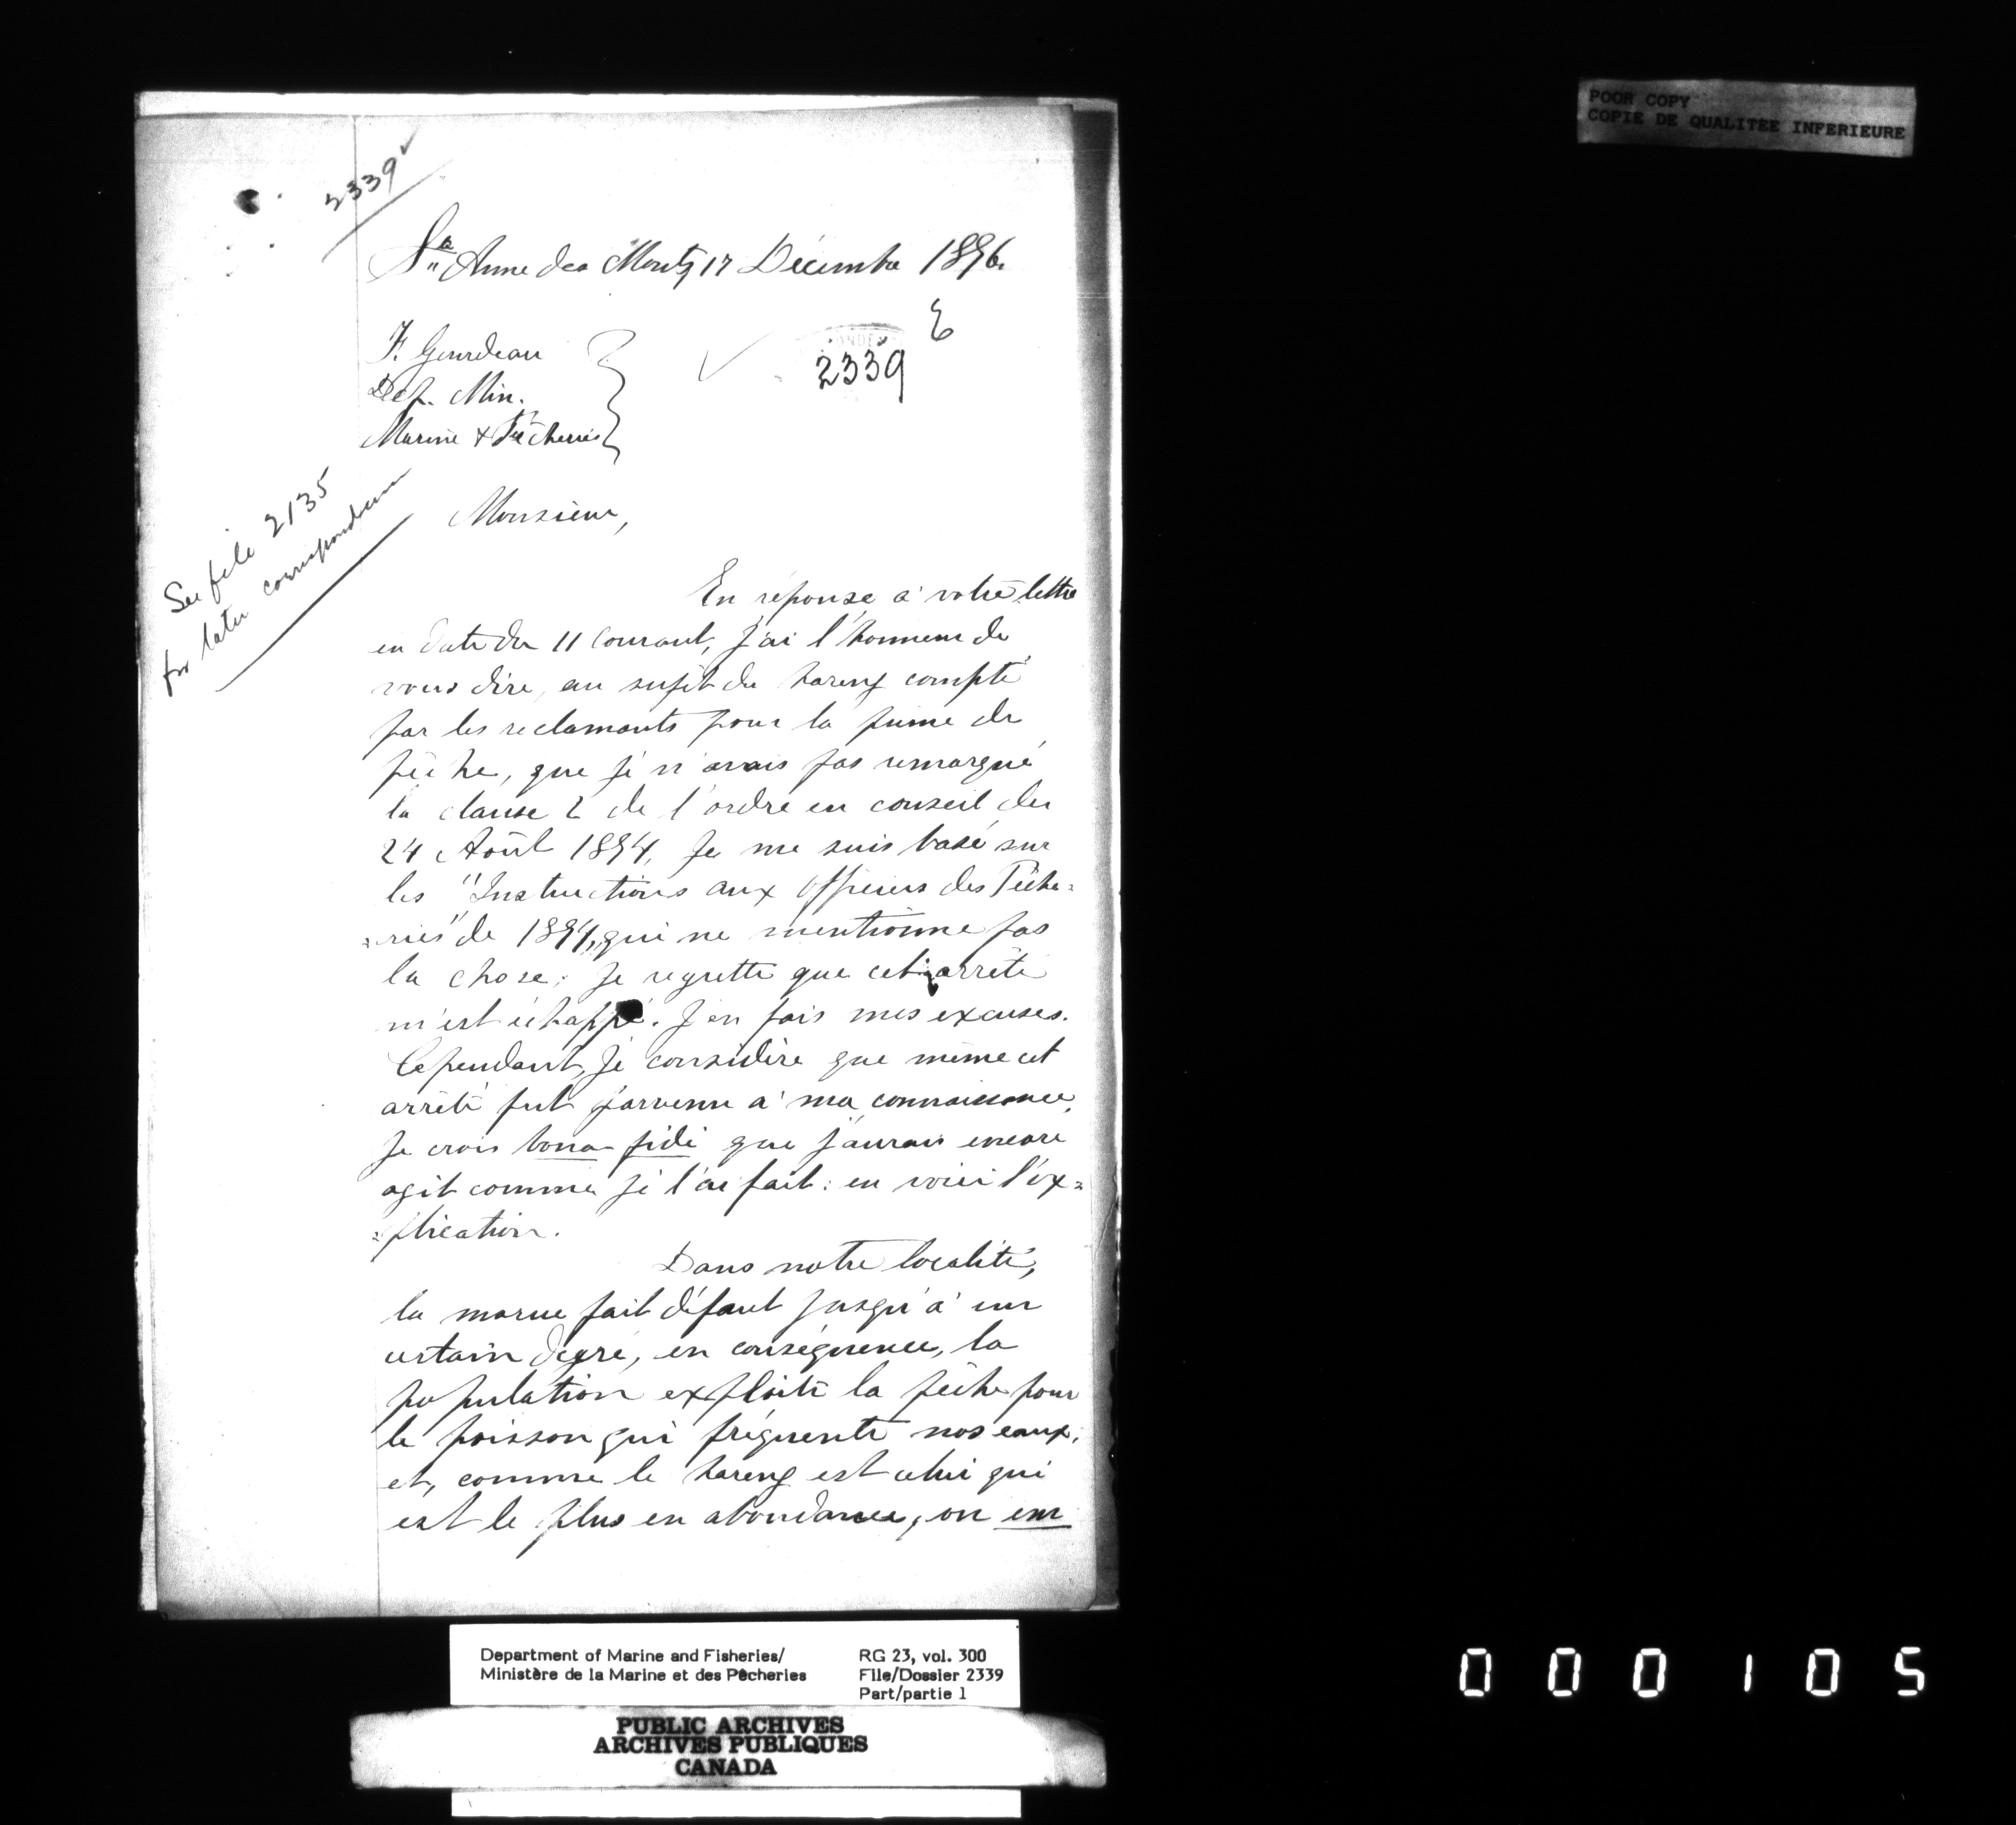 POOR COPY
COPIE DE QUALITÉE INFERIEURE
2339
Ste Anne des Monts 17 Décembre 1896.
E
2339
F. Gourdeau
Dep. Min.
Marine & Pêcheries
See file 2135
for later correspondence
Monsieur,
En réponse à votre lettre
en date du 11 courant, j'ai l'honneur de
vous dire, au sujet du hareng compté
par les reclamants pour la prime de
pêche, que je n'avais pas remarqué
la clause 2 de l'ordre en conseil du
24 Août 1894, Je me suis basé sur
les "Instructions aux Officiers des Pêche=
=ries" de 1894, qui ne mentionne pas
la chose; Je regrette que cet arrêté
m'est échappé. J'en fais mes excuses.
Cependant, Je considère que même cet
arrêté fut parvenu à ma connaissance,
Je crois bona fide que j'aurais encore
agit comme je l'ai fait: en voici l'ex=
=plication.
Dans notre localité,
la morue fait défaut jusqu'à un
certain degré, en conséquence, la
population exploite la pêche pour
le poisson qui fréquente nos eaux;
et, comme le hareng est celui qui
est le plus en abondance, on em
Department of Marine and Fisheries/
Ministère de la Marine et des Pêcheries
RG 23, vol. 300
File/Dossier 2339
Part/partie 1
PUBLIC ARCHIVES
ARCHIVES PUBLIQUES
CANADA
000105